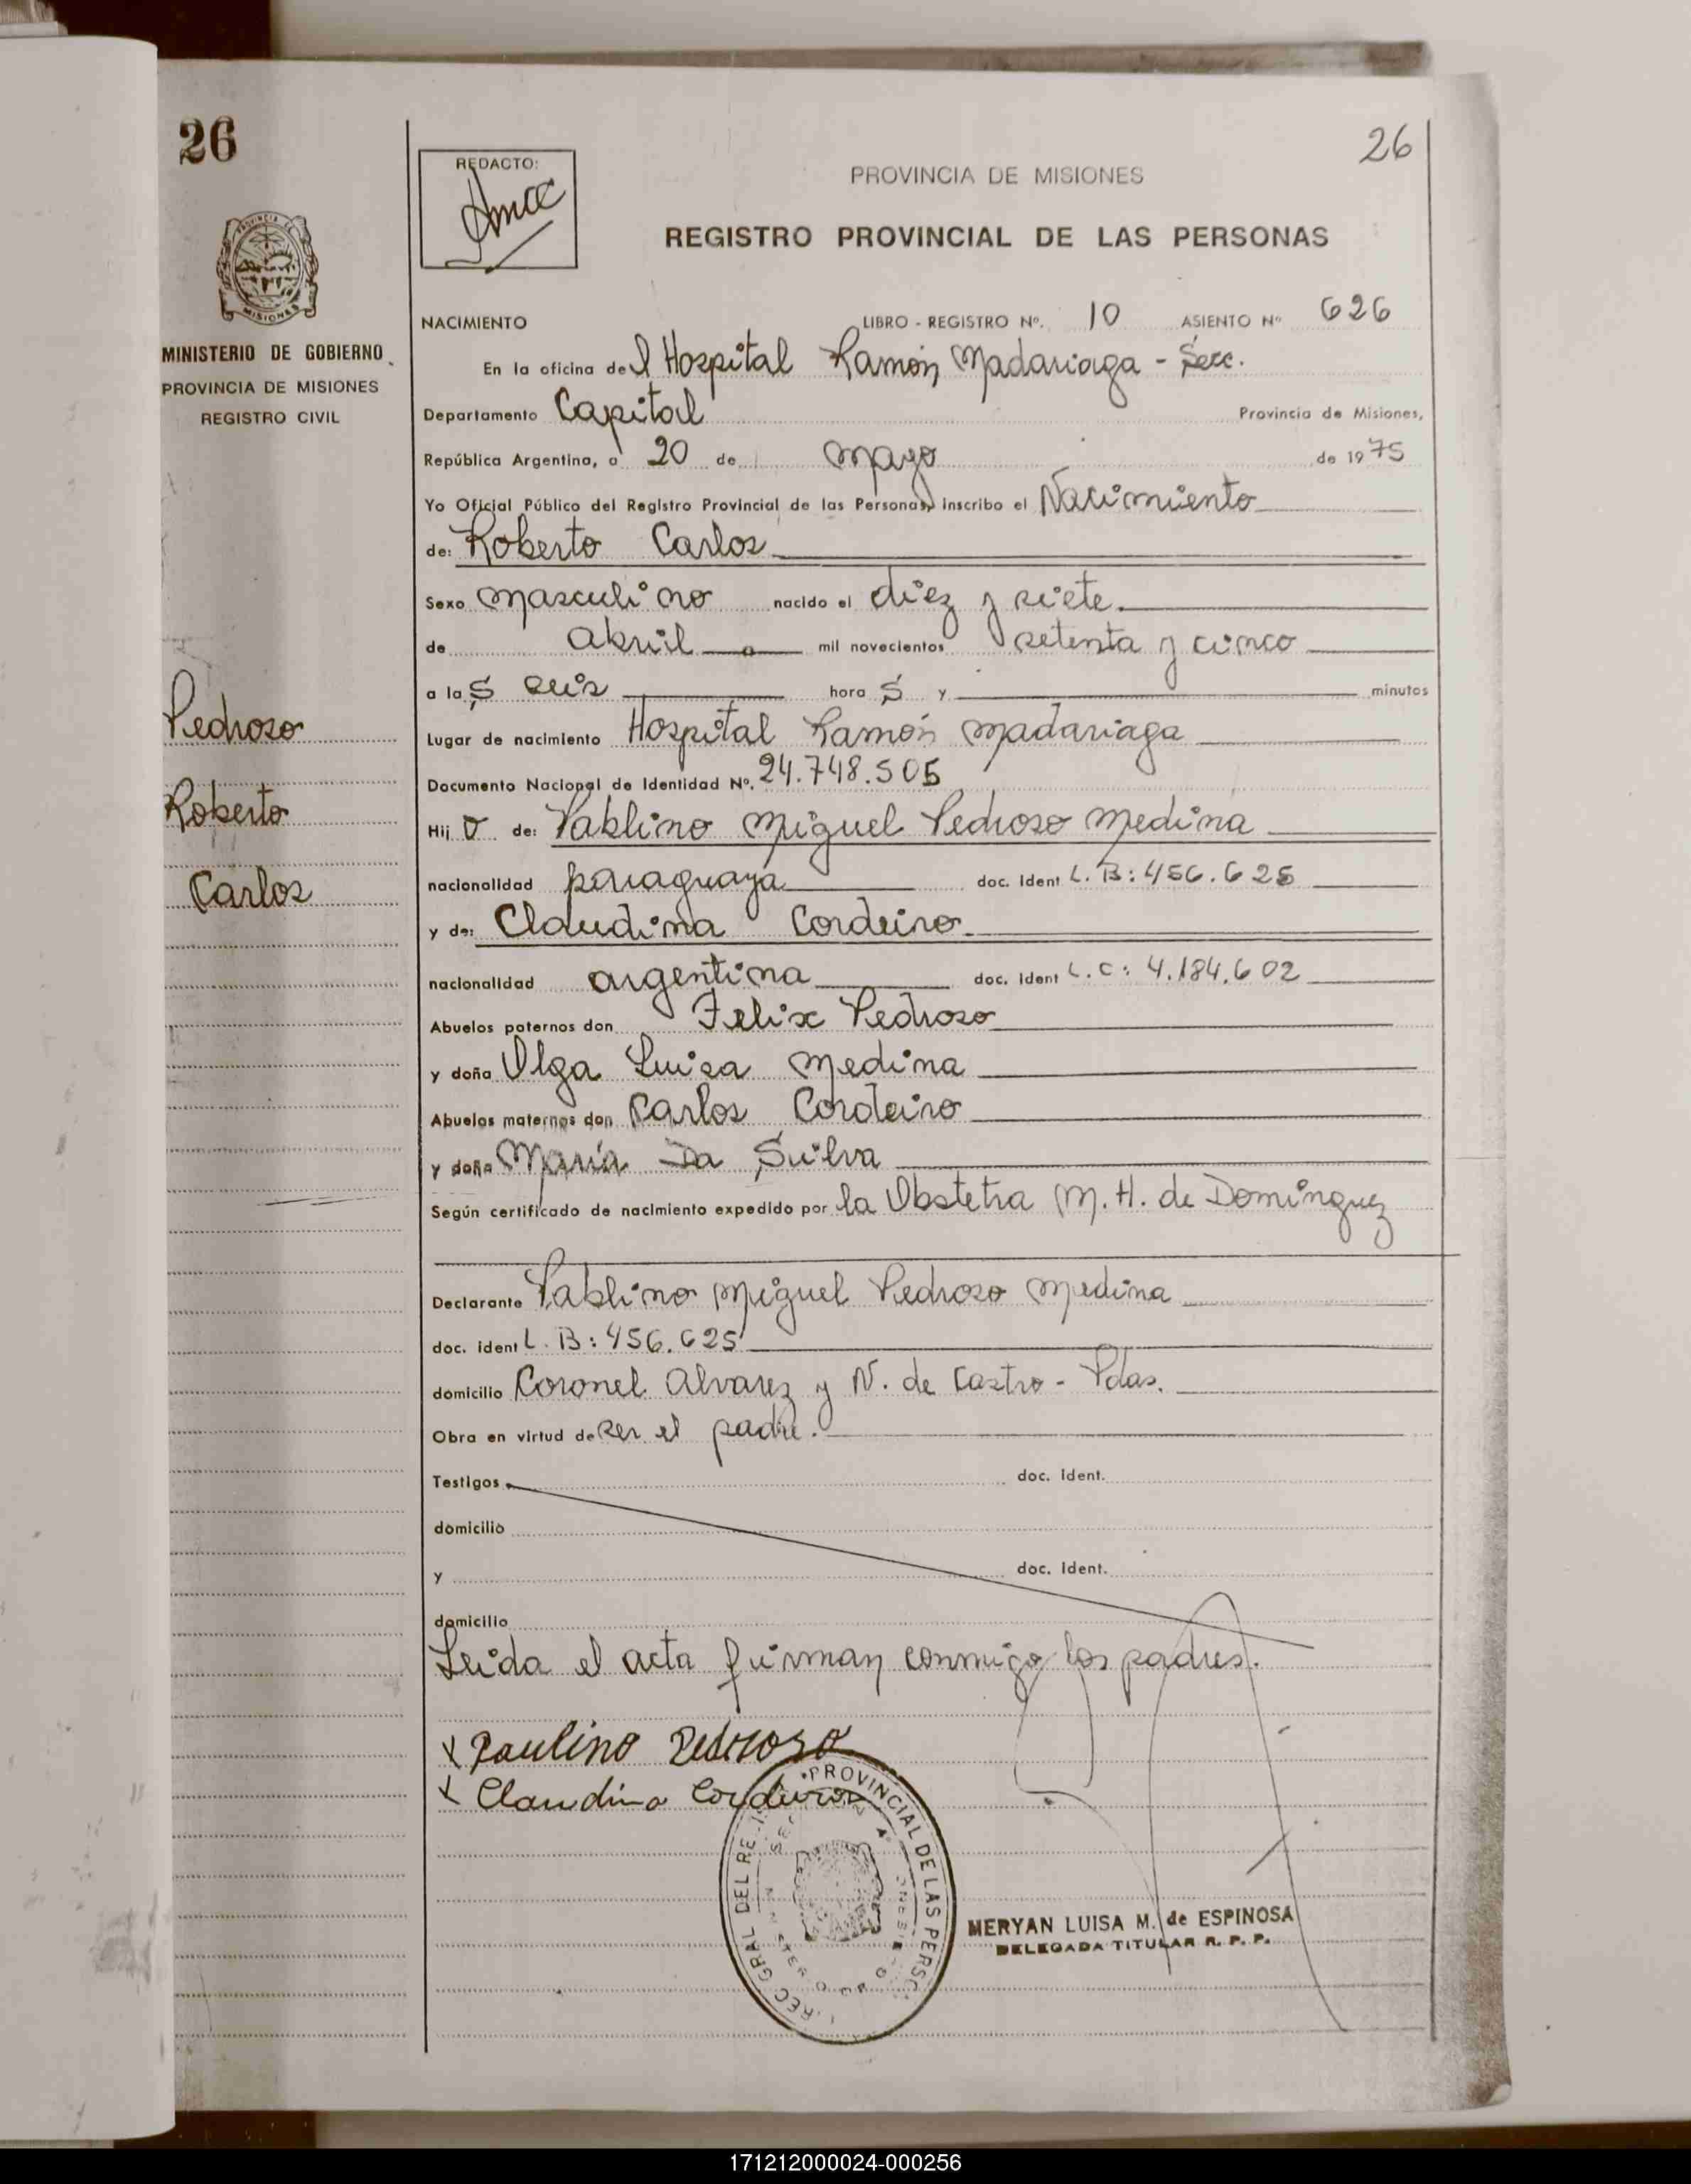 26
26
REDACTO:
PROVINCIA DE MISIONES
REGISTRO PROVINCIAL DE LAS PERSONAS
MISIONES
MINISTERIO DE GOBIERNO
PROVINCIA DE MISIONES
REGISTRO CIVIL
NACIMIENTO LIBRO - REGISTRO Nº. 10 ASIENTO Nº 626
En la oficina del Hospital Ramón Madariaga - Secc.
Departamento Capital Provincia de Misiones,
República Argentina, a 20 de mayo de 1975
Yo Oficial Público del Registro Provincial de las Personas, inscribo el Nacimiento
de: Roberto Carlos
Sexo masculino nacido el diez y siete
de abril mil novecientos setenta y cinco
a las seis horas y minutos
Lugar de nacimiento Hospital Ramón Madariaga
Documento Nacional de Identidad Nº. 24.748.505
Hijo de: Pablino Miguel Pedroso Medina
nacionalidad paraguaya doc. Ident L.B: 456.625
y de: Claudina Cordeiro
nacionalidad argentina doc. Ident L.C: 4.184.602
Abuelos paternos don Felix Pedroso
y doña Olga Luisa Medina
Abuelos maternos don Carlos Cordeiro
y doña María Da Silva
Según certificado de nacimiento expedido por la Obstetra M. H. de Dominguez
Declarante Pablino Miguel Pedroso Medina
doc. ident L.B: 456.625
domicilio Coronel Alvarez y N. de Castro - Pdas.
Obra en virtud de ser el padre.
Testigos doc. Ident.
domicilio
y doc. Ident.
domicilio
Leida el acta firman conmigo los padres.
Pedroso
Roberto
Carlos
x Paulino Pedroso
x Claudina Cordeiro
PROVINCIAL DE LAS PERSO
MERYAN LUISA M. de ESPINOSA
DELEGADA TITULAR R. P. P.
171212000024-000256